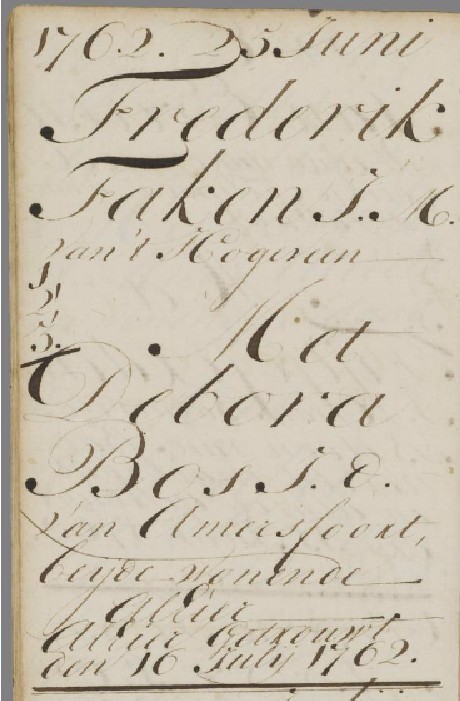 1762. 25 Juni
Frederik
Faken J. M.
van't Hogeveen
1
2
3.
Met
Debora
Bos J. D.
van Amersfoort,
beyde wonende
alhier
Alhier getrouwt
den 16 July 1762.